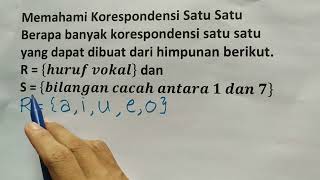 Memahami Korespondensi Satu Satu
Berapa banyak korespondensi satu satu
yang dapat dibuat dari himpunan berikut.
R = {huruf vokal} dan
S = {bilangan cacah antara 1 dan 7}
R = {a, i, u, e, o}